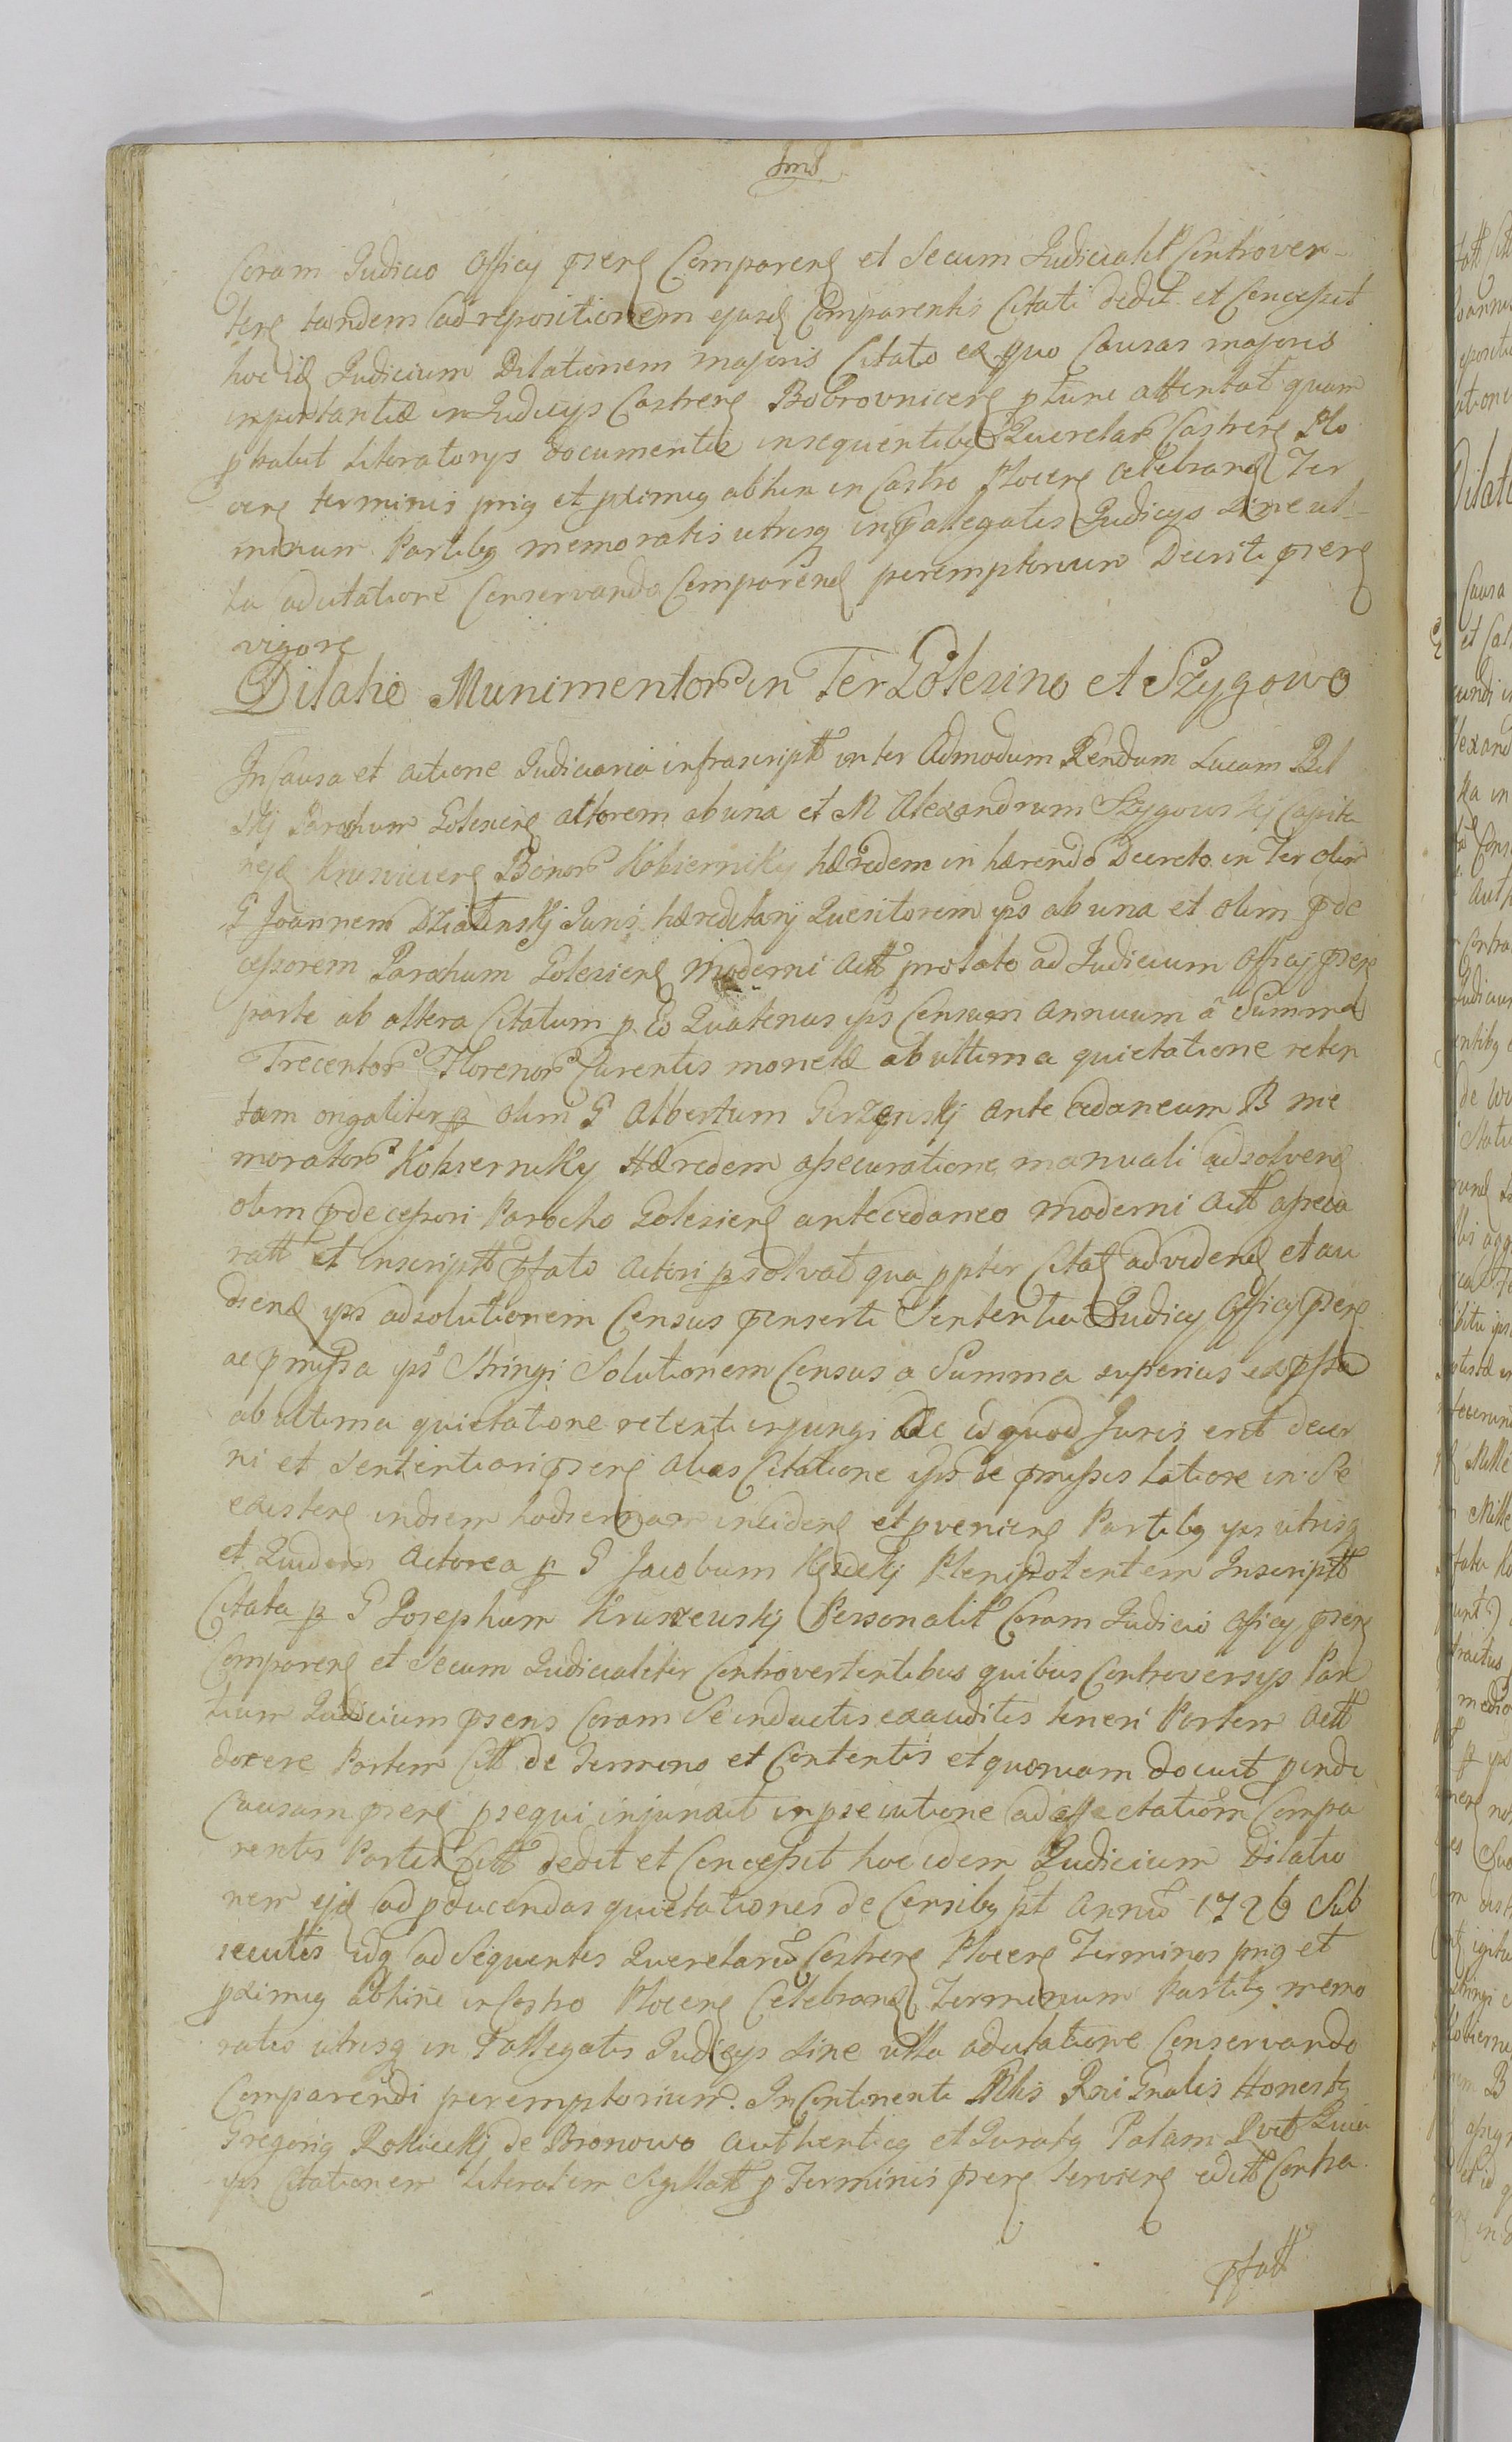 Coram Judicio Officy pnens Comparens et Secum Judicialit Controver-
tens tandem ad repositionem ejusd Comparentis Citati dedit et Concessit
hoc id Judicium Dilationem majoris Citato ex quo Causas majoris
importantiæ in Judicijs Castrens Bobrovnicens attentat quam
pbabit Literatorijs Documentis in sequentibq Querelar Castrens Plo
cens terminis prig et pximig abhinc in Castro Plocens celebrand Ter
minum Partibq memoratis utrisq in pallegatis Judicijs sine ul-
la adcitatione Conservando Comparend peremptorium Decreti pnens
vigore
Dilatio Munimentor in Ter Golesino et Szygowo
In Causa et actione Judiciaria infrascript inter Admodum Rendum Lucam Bel
skj Parochum Golesiens actorem ab una et M Alexandrum Szygowskj Capita
neid Krusvicens Bonor Kobierniky hæredem in hærendo Decreto in Ter olim
G Joannem Dzialinskj Juris hæreditarij Quesitorem ips ab una et olim pde
cessorem Parochum Golesiens moderni Act prolato ad Judicium Officij pnens
parte ab altera Citatum p Eo Quatenus ips Censum annuum a Summa
Trecentor Florenor Curentis monetæ ab ultima quietatione reten
tam per olim G Albertum ante cedaneum B me
morator Kobierniky Hæredem assecuratione manuali adsolvend
olim pdecessori Parocho Golesiens antecedaneo moderni Act asseca
ratt et inscriptt pfato Actori psolvat qua ppter Citat ad vidend et au
diend ips adsolutionem Census pinserti Sententia Judicij Officij pnens
ac pmissa ips Stringi Solutionem Census a Summa superius expssa
ab ultima quietatione retenti injungi ac id quod Juris erit decer
ni et Sententiari pnens alias Citatione ips de pmissis latiore in Se
existens in diem hodiernam incidens et pveniens Partibq ips utrisq
et Quidem Actorea p G Jacobum Plenipotentem Inscriptt
Citata p G Josephum Kruszewskj Personalit Coram Judicio Officij pnens
Comparens et Secum Judicialiter Controvertentibus quibus Controversijs Par
tium Judicium pnsens Coram Se inductis exauditis teneri Partem Act
docere Partem Citt de Termino et Contentis et quoniam docuit pinde
Causam pnens psequi injunxit in psecutione ad affectationem Compa
rentis Partis Citt dedit et Concessit hoc idem Judicium Dilatio
nem ejd ad pducendas quietationes de Censibq pt Annu 1726 Sub
secutis idq ad Sequentes Querelaru Castrens Plocens Terminos prig et
pximig abhinc in Castro Plocens Celebrand Terminum Partibq memo
ratis utrisq in pallegatis Judicijs sine ulla adcitatione Conservando
Comparendi peremptorium. In Continenti Mtlis Rni Gnalis Honestq
Gregoriq Rokickj de Bronowo authenticq et Juratq Palam
ips Citationem Literalem Sigillatt p Terminis pnens Serviens edit Contra
pfatt